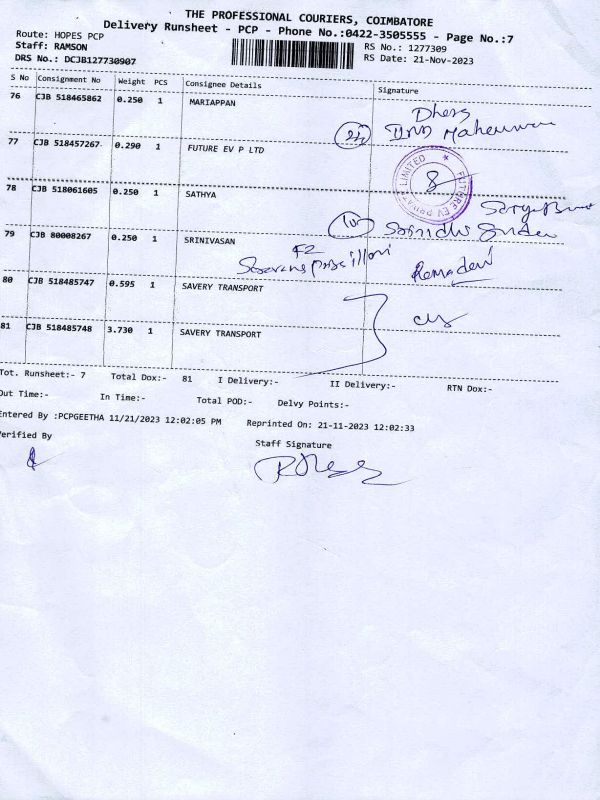 THE PROFESSIONAL COURIERS, COIMBATORE
Delivery Runsheet - PCP - Phone No.:0422-3505555 - Page No.:7
Route: HOPES PCP
RS No.: 1277309
Staff: RAMSON
RS Date: 21-Nov-2023
DRS No.: DCJB127730907
S No Consignment No Weight PCS Consignee Details Signature
76 CJB 518465862 0.250 1 MARIAPPAN
77 CJB 518457267 0.290 1 FUTURE EV P LTD
FUTURE EV PRIVATE LIMITED
78 CJB 518061605 0.250 1 SATHYA
79 CJB 80008267 0.250 1 SRINIVASAN
F2
Ramadevi
80 CJB 518485747 0.595 1 SAVERY TRANSPORT
81 CJB 518485748 3.730 1 SAVERY TRANSPORT
Tot. Runsheet:- 7 Total Dox:- 81 I Delivery:- II Delivery:- RTN Dox:-
Out Time:- In Time:- Total POD:- Delvy Points:-
Entered By :PCPGEETHA 11/21/2023 12:02:05 PM Reprinted On: 21-11-2023 12:02:33
Verified By
Staff Signature